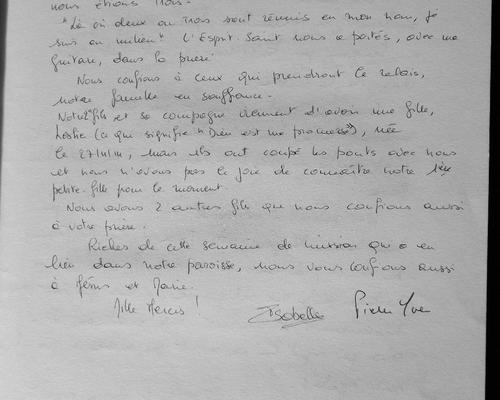 nous étions trois.
"Là où deux ou trois sont réunis en mon nom, je
suis au milieu" L'Esprit Saint nous a portés, avec ma
guitare, dans la prière.
Nous confions à ceux qui prendront le relais,
notre famille en souffrance.
Notre 2e fils et sa compagne viennent d'avoir une fille,
(ce qui signifie "Dieu est ma promesse"), née
le 27/01/14, mais ils ont coupé les ponts avec nous
et nous n'avons pas la joie de connaître notre 1ère
petite-fille pour le moment.
Nous avons 2 autres fils que nous confions aussi
à votre prière.
Riches de cette semaine de mission qui a eu
lieu dans notre paroisse, nous vous confions aussi
à Jésus et Marie.
Mille Mercis ! Isabelle Pierre Yve